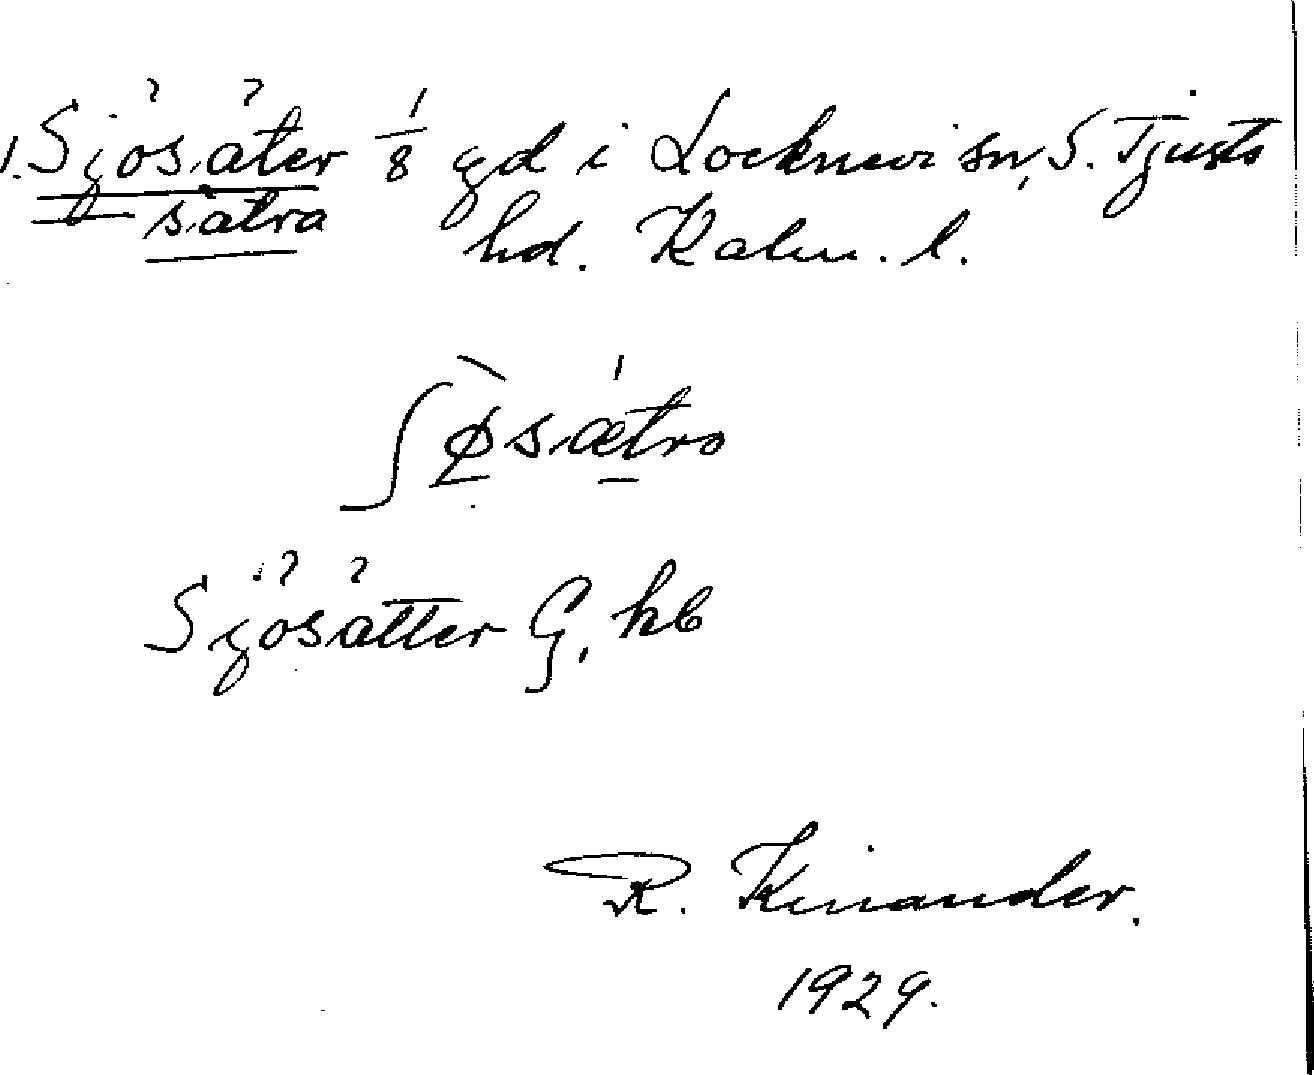 1. Sjösäter 1/8 gd i Locknevi sn, S. Tjusts
sätra hd. Kalm. l.
ʃø̀sǽtro
Sjösätter G. kb
R. Kinander.
1929.